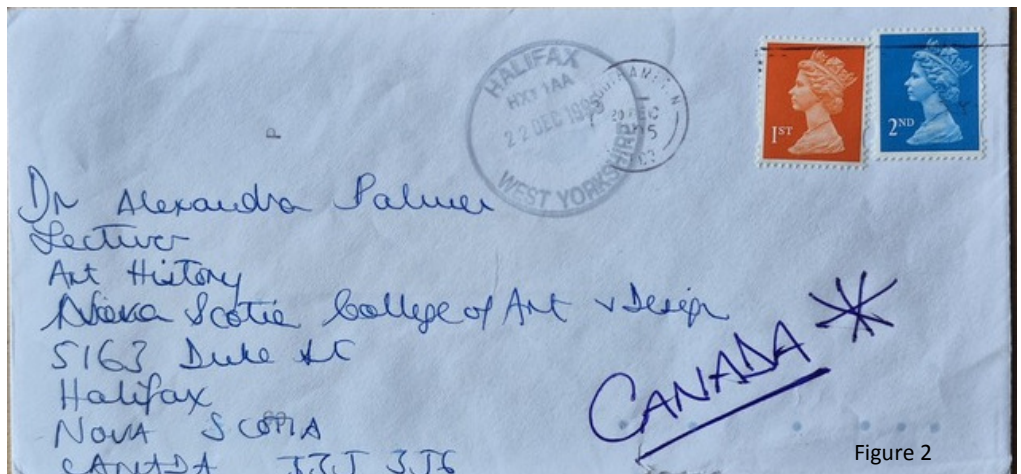 HALIFAX
HX1 1AA
22 DEC 1995
WEST YORKSHIRE
1ST
2ND
Dr Alexandra Palmer
Lecturer
Art History
Nova Scotia College of Art & Design
5163 Duke St
Halifax
NOVA SCOTIA
CANADA J3J 3J6
CANADA *
Figure 2